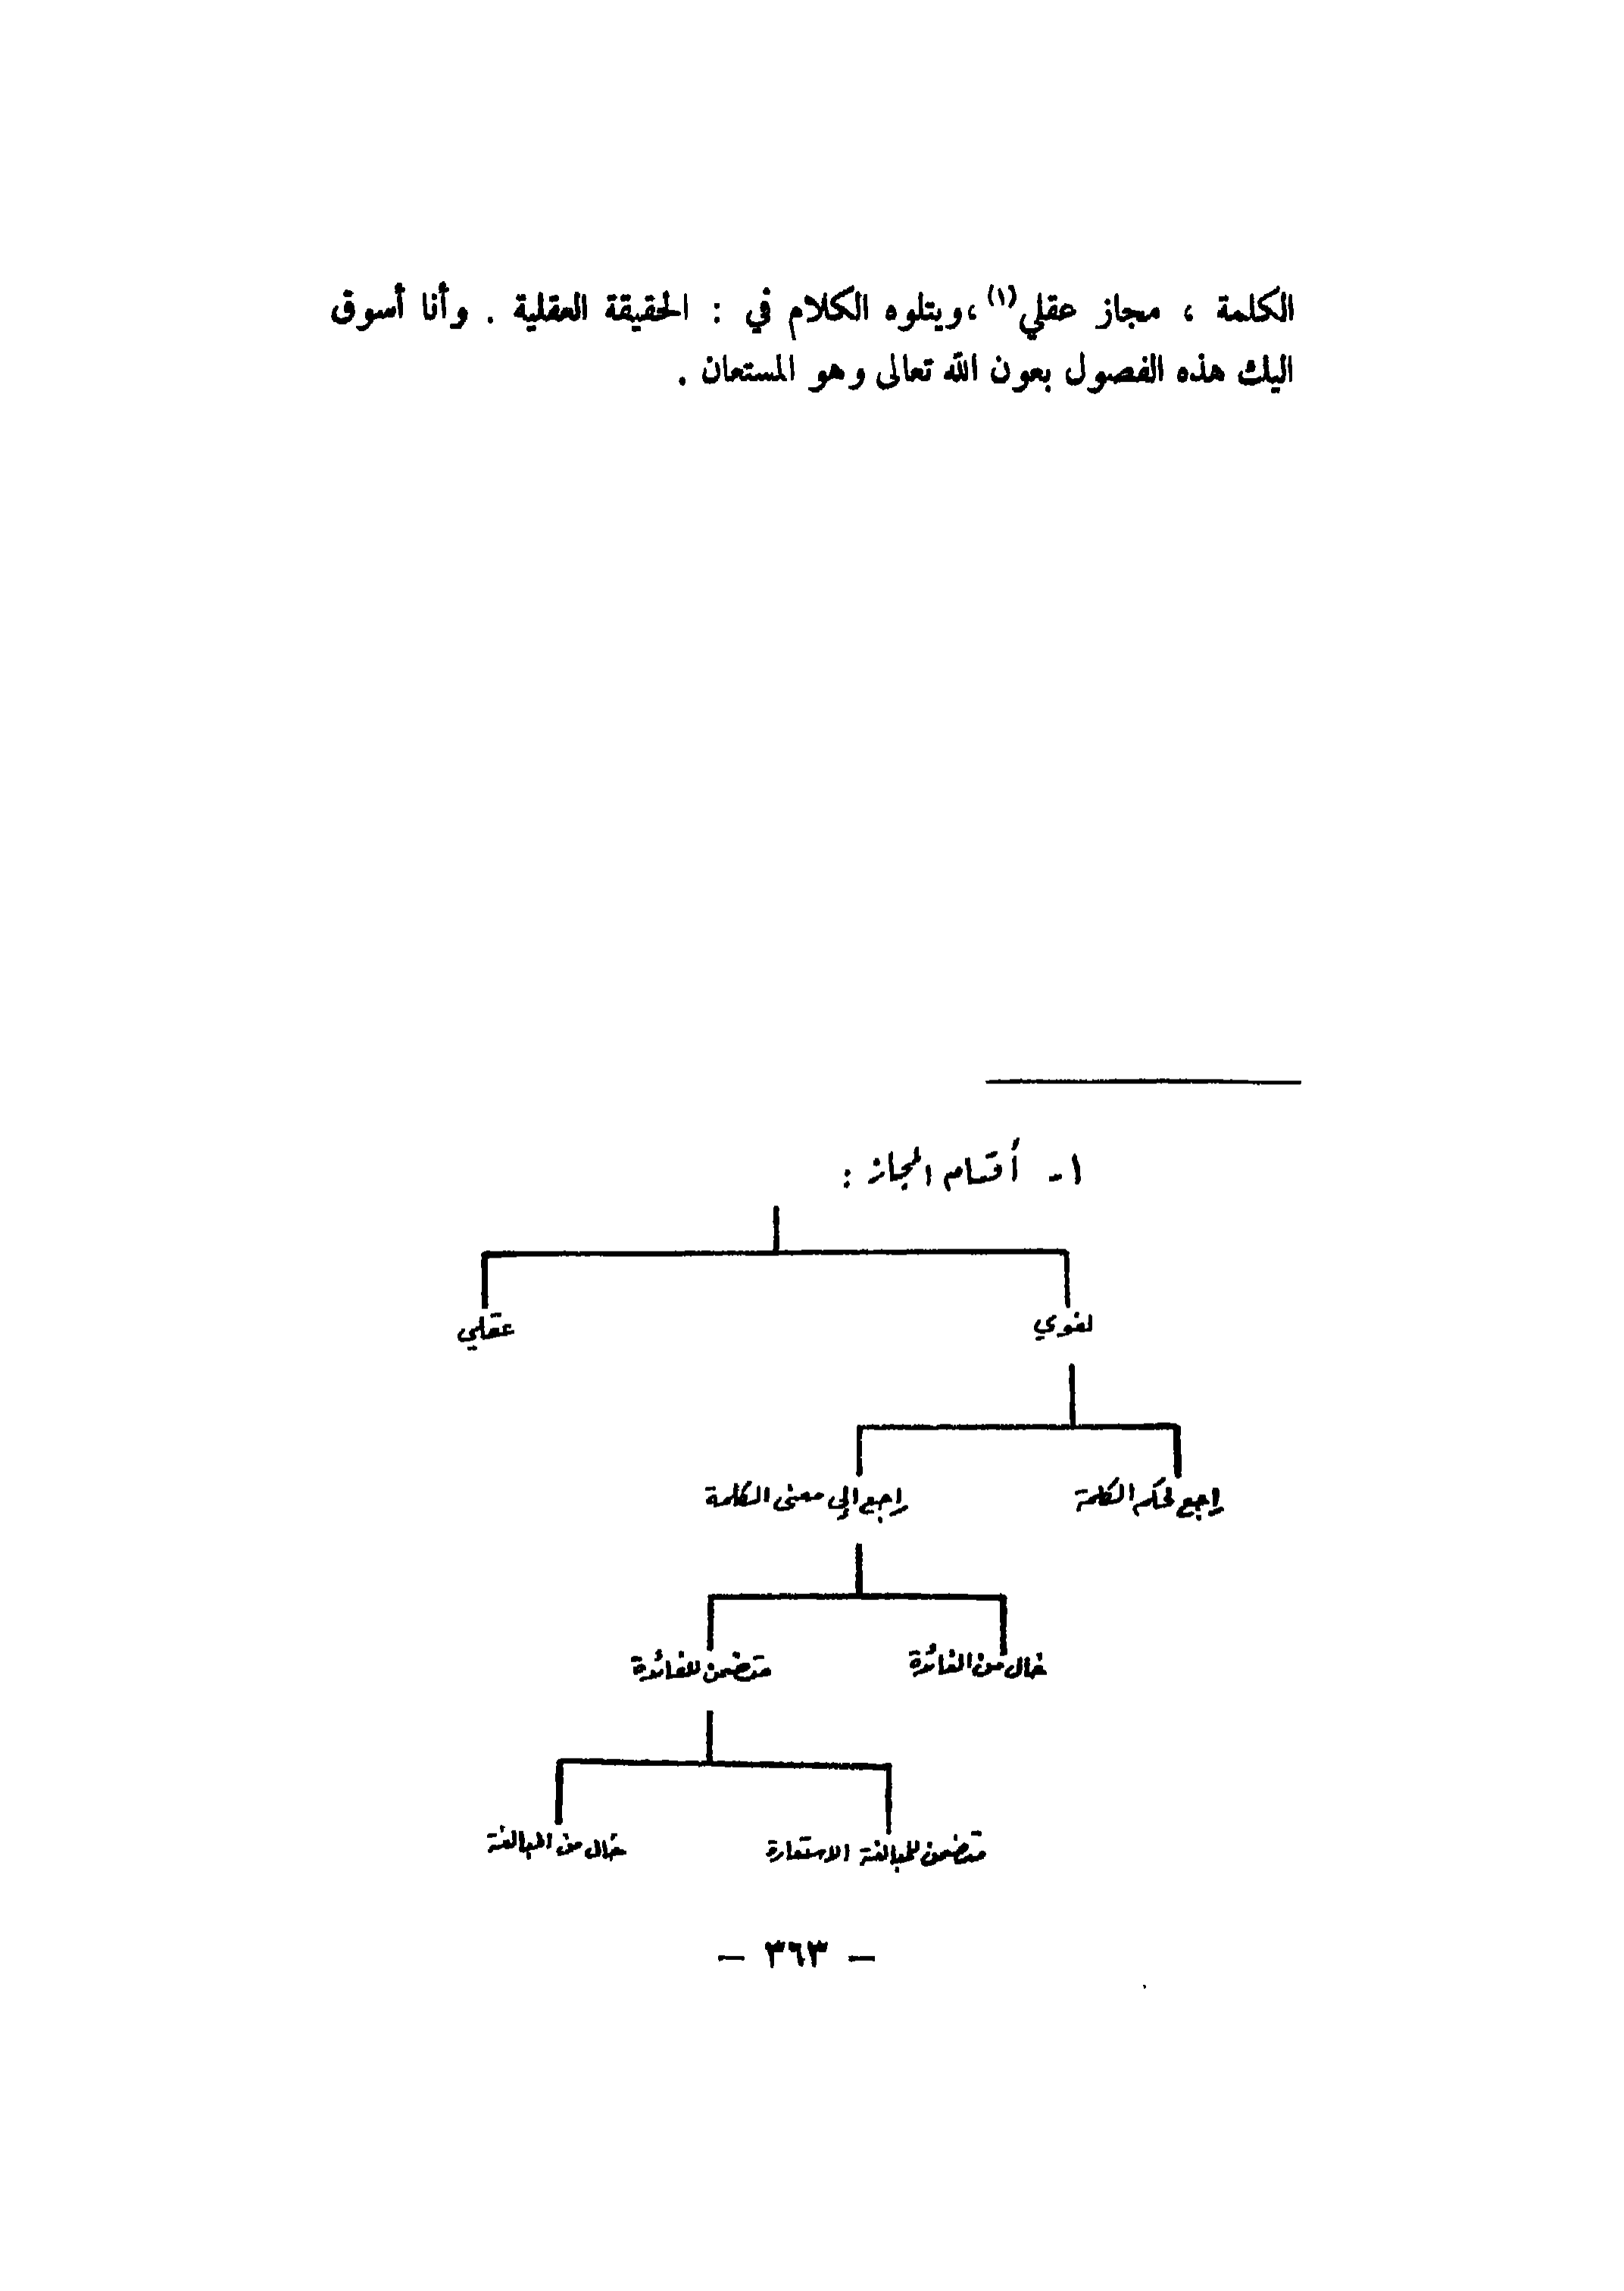 الكلمة ، مجاز عقلي(١)،ويتلوه الكلام في : الحقيقة العقلية . وأنا أسوق
اليك هذه الفصول بعون الله تعالى وهو المستعان .
١- أقسام المجاز :
لغوي
عقلي
راجع لحكم الكلمة
راجع إلى معنى الكلمة
خال من الفائدة
متضمن للفائدة
متضمن للمبالغة الاستعارة
خال من المبالغة
— ٣٦٣ —